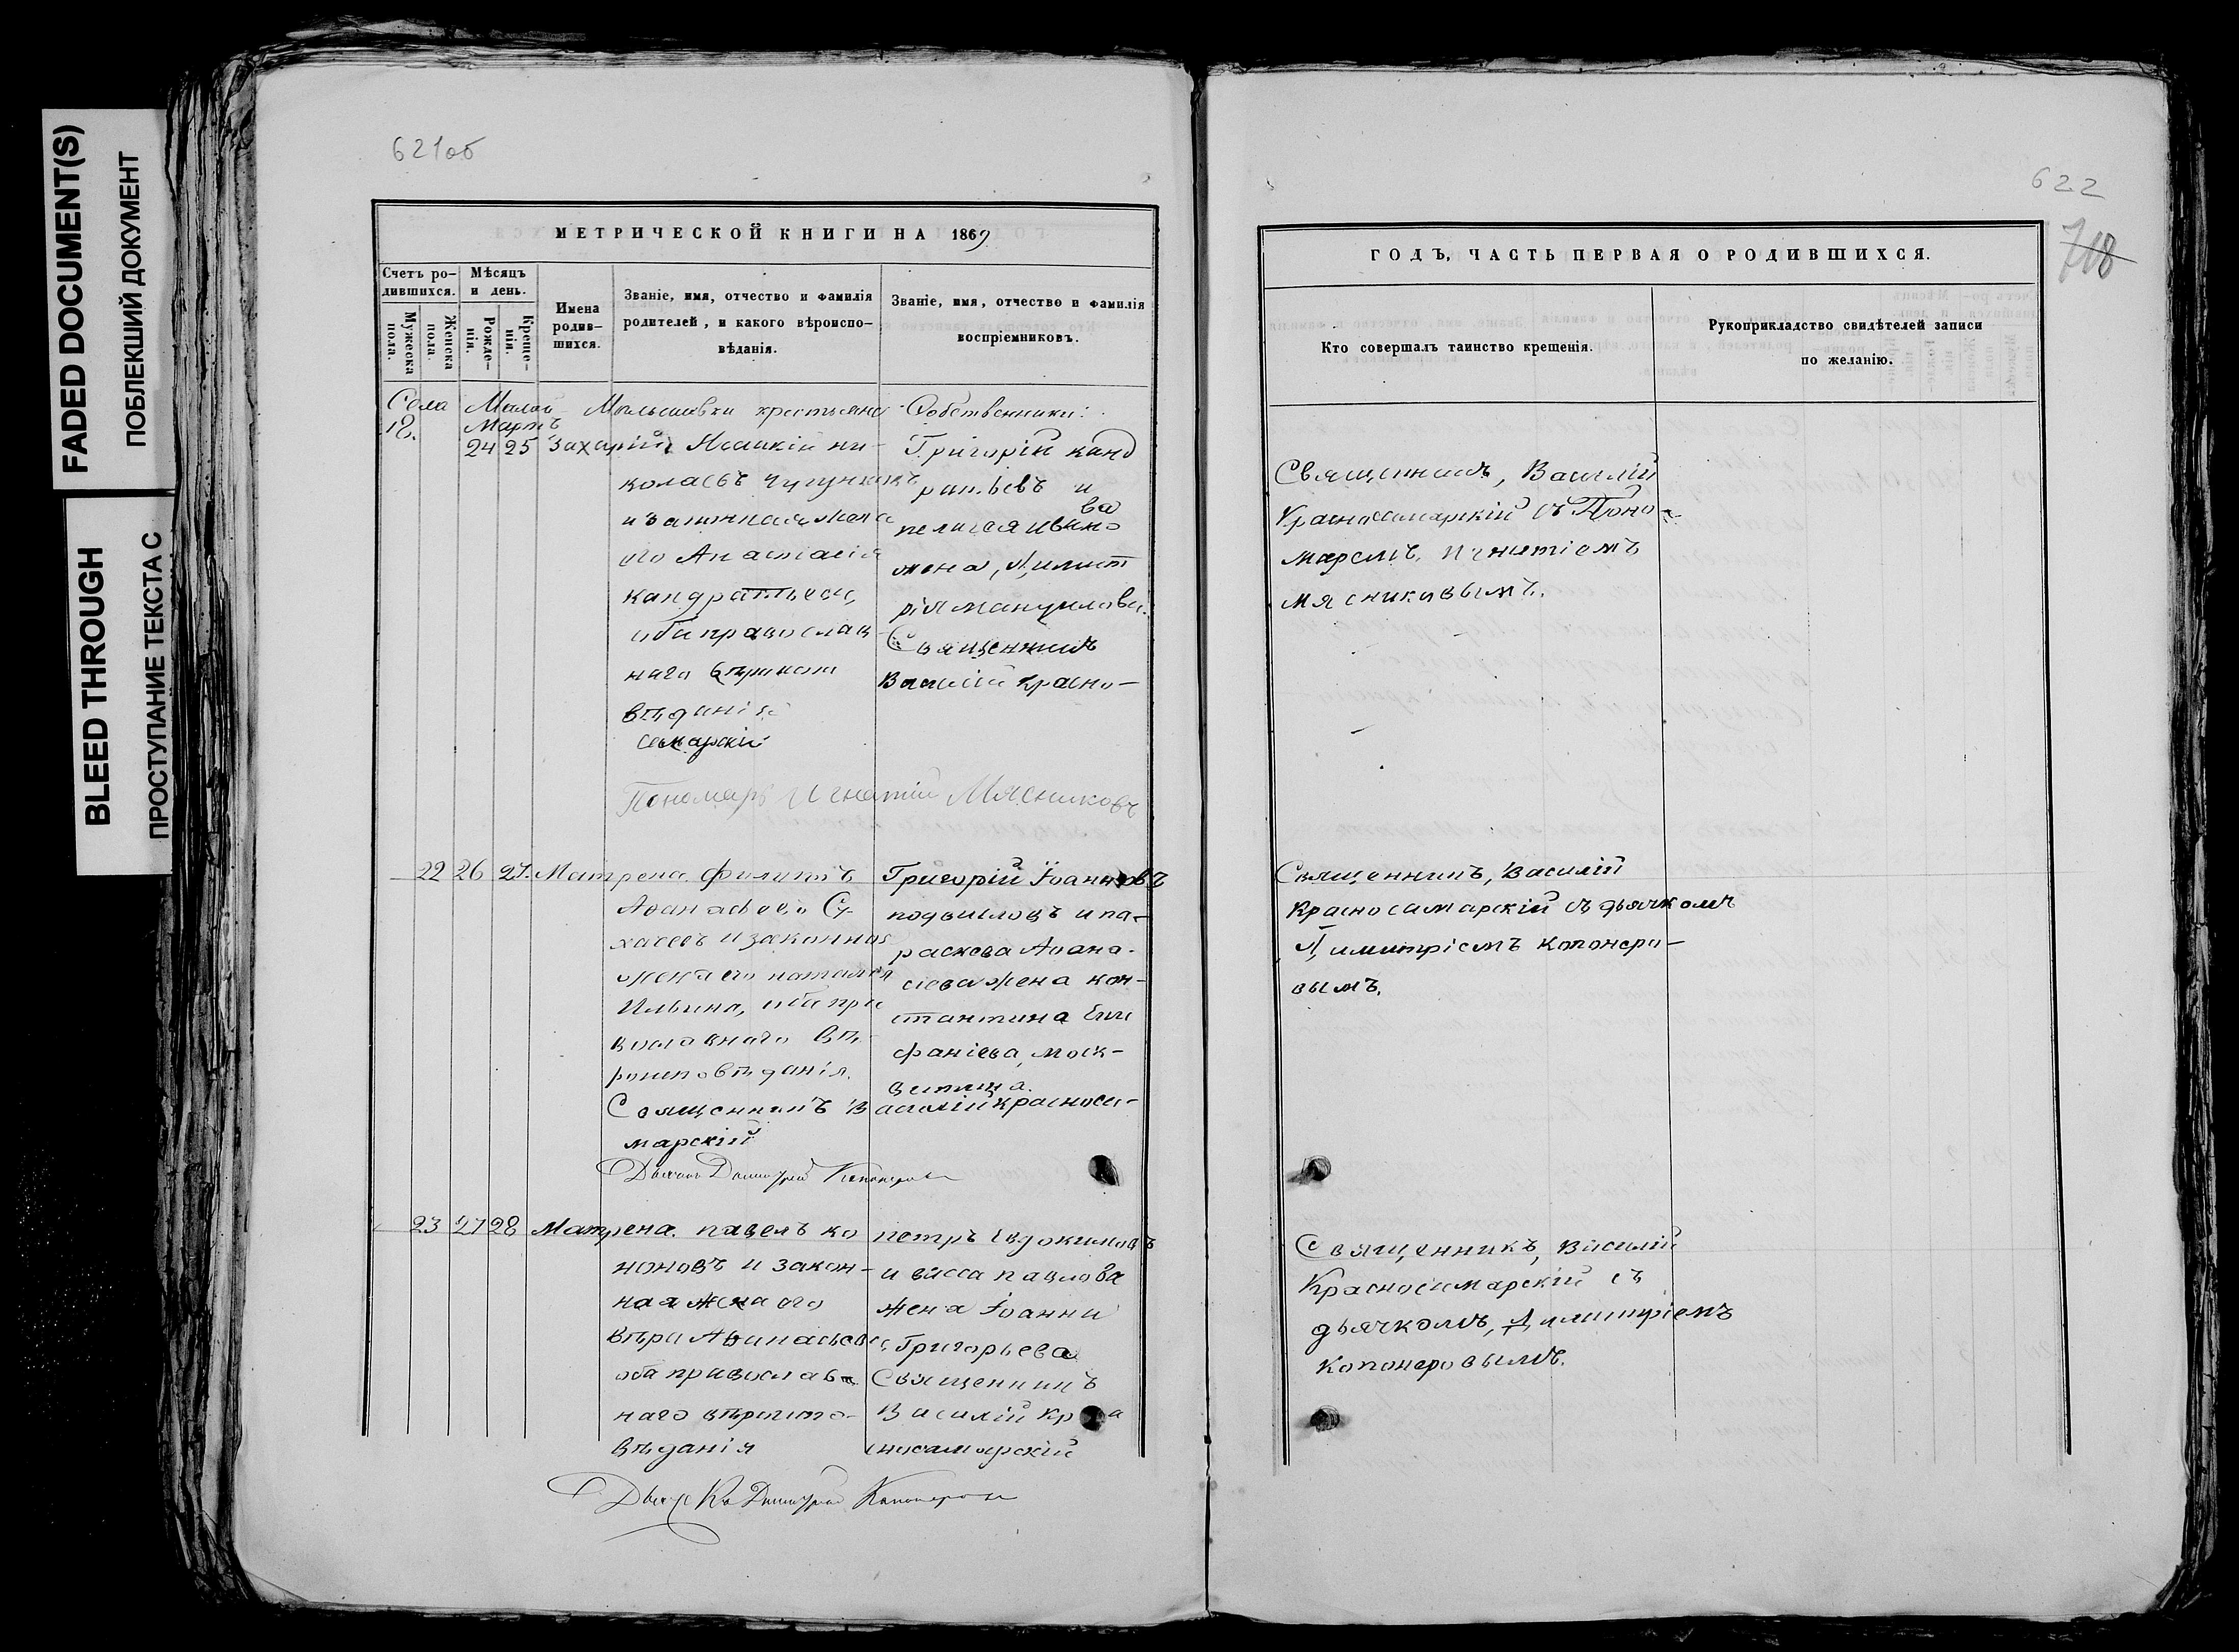 FADED DOCUMENT(S)
ПОБЛЕКШИЙ ДОКУМЕНТ
BLEED THROUGH
ПРОСТУПАНИЕ ТЕКСТА С
621об
МЕТРИЧЕСКОЙ КНИГИ НА 1869
Счетъ ро-
дившихся.
Мужеска
пола.
Женска
пола.
Мѣсяцъ
и день.
Рожде-
нія.
Креще-
нія.
Имена
родив-
шихся.
Званіе, имя, отчество и фамилія
родителей, и какого вѣроиспо-
вѣданія.
Званіе, имя, отчество и фамилія
воспріемниковъ.
Села Малой Малышевки крестьяне Собственники:
18. Мартъ
24 25 Захарій
николаевъ
и законная жена
его Анастасія
кандратьева,
оба православ-
наго вѣроиспо
вѣданія
Григорій канд
ратьевъ и
пелагея иванова
жена, Димит
рія мануилова.
Священникъ
Василій Красно-
самарскій
Пономарь Игнатій Мясниковъ
22 26 27. Матрена. филиппъ
Аѳанасьевъ Су-
хачевъ и законная
жена его наталья
Ильина, оба пра
вославнаго вѣ-
роисповѣданія.
Григорій Іоанновъ
и па-
раскева Аѳана-
сіева жена кон-
стантина Епи
фаніева, моск-
витина.
Священникъ Василій красноса-
марскій
Дьячекъ Димитрій Капонеровъ
23 27 28 Матрена. павелъ ко
ноновъ и закон-
ная жена его
вѣра Аѳанасьева,
оба православ-
наго вѣроиспо-
вѣданія
петръ Евдокимовъ
и васса павлова
жена Іоанна
Григорьева
Священникъ
Василій Кра
сносамарскій
Дьячекъ Димитрій Капонеровъ
622
718
ГОДЪ, ЧАСТЬ ПЕРВАЯ О РОДИВШИХСЯ.
Кто совершалъ таинство крещенія.
Рукоприкладство свидѣтелей записи
по желанію.
Священникъ, Василій
Красносамарскій съ Поно-
маремъ, Игнатіемъ
мясниковымъ.
Священникъ, Василій
Красносамарскій съ дьячкомъ
Димитріемъ копонеро-
вымъ.
Священникъ, Василій
Красносамарскій съ
дьячкомъ, Димитріемъ
копонеровымъ.